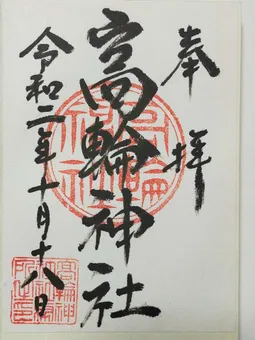 奉拝
高輪神社
令和二年十月十八日
高輪神社